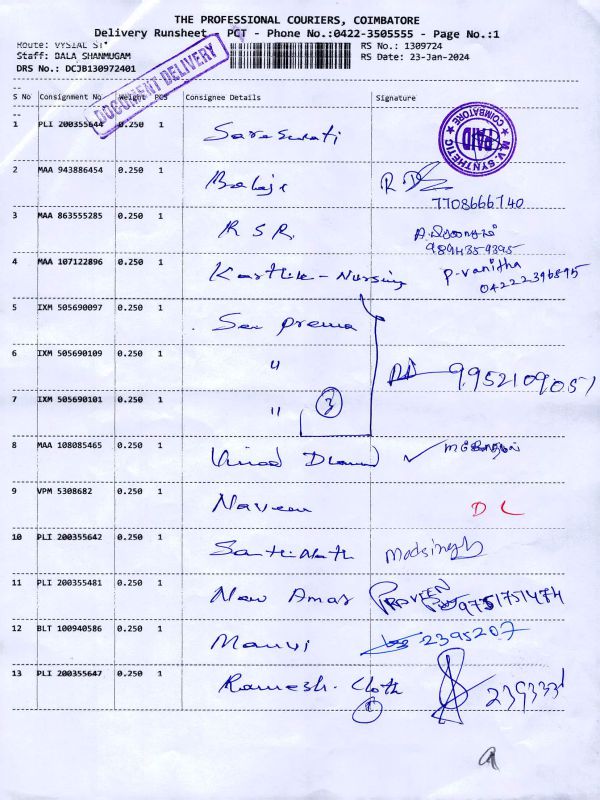 THE PROFESSIONAL COURIERS, COIMBATORE
Delivery Runsheet PCT - Phone No.:0422-3505555 - Page No.:1
Route: VYSIAL ST
Staff: DALA SHANMUGAM
DRS No.: DCJB130972401
RS No.: 1309724
RS Date: 23-Jan-2024
DOCUMENT DELIVERY
S No Consignment No Weight PCS Consignee Details Signature
1 PLI 200355644 0.250 1 Saraswati
M.V. SYNTHETIC COIMBATORE PAID
2 MAA 943886454 0.250 1 Balaji
7708666740
3 MAA 863555285 0.250 1 R S R
9894359395
4 MAA 107122896 0.250 1 Karthik - Nursing P-vanitha
04222396895
5 IXM 505690097 0.250 1 Sai Prema
6 IXM 505690109 0.250 1 "
9952109051
7 IXM 505690101 0.250 1 " 3
8 MAA 108085465 0.250 1 Vinod
9 VPM 5308682 0.250 1 Naveen D L
10 PLI 200355642 0.250 1 Santhinath Modsingh
11 PLI 200355481 0.250 1 New Amar PRAVEEN 9751751474
12 BLT 100940586 0.250 1 Manvi 2395207
13 PLI 200355647 0.250 1 Ramesh Cloth
1